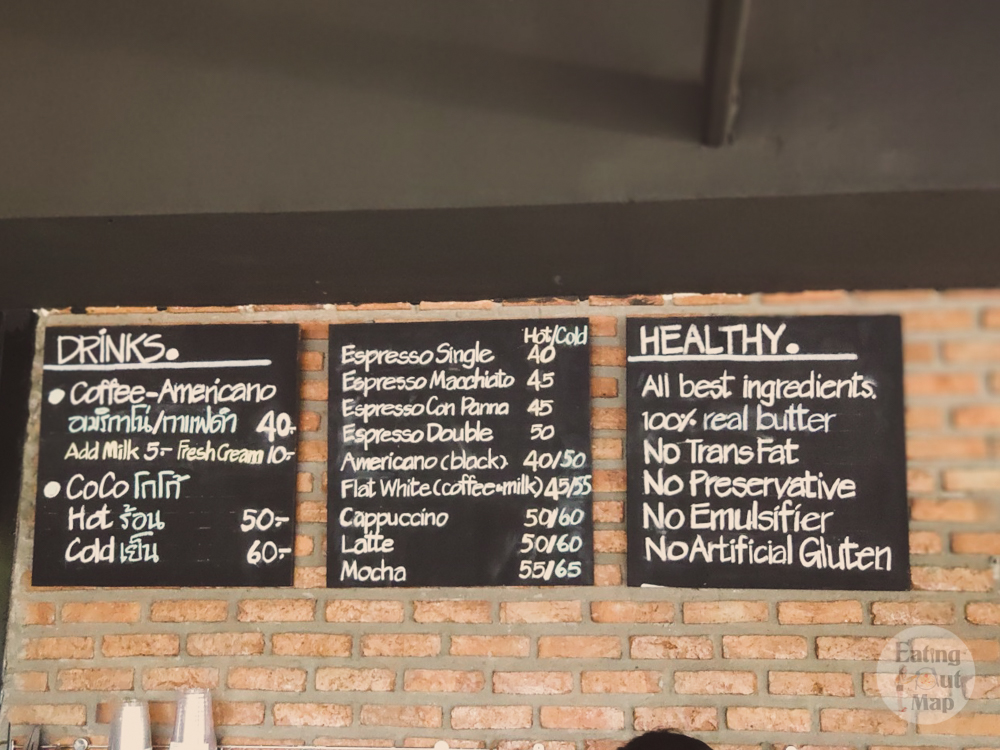 DRINKS.
Coffee-Americano
อเมริกาโน่/กาแฟดำ 40.-
Add Milk 5.- Fresh Cream 10.-
CoCo โกโก้
Hot ร้อน 50.-
Cold เย็น 60.-
Hot/Cold
Espresso Single 40
Espresso Macchiato 45
Espresso Con Panna 45
Espresso Double 50
Americano (black) 40/50
Flat White (coffee+milk) 45/55
Cappuccino 50/60
Latte 50/60
Mocha 55/65
HEALTHY.
All best ingredients.
100% real butter
No Trans Fat
No Preservative
No Emulsifier
No Artificial Gluten
Eating
Out
Map